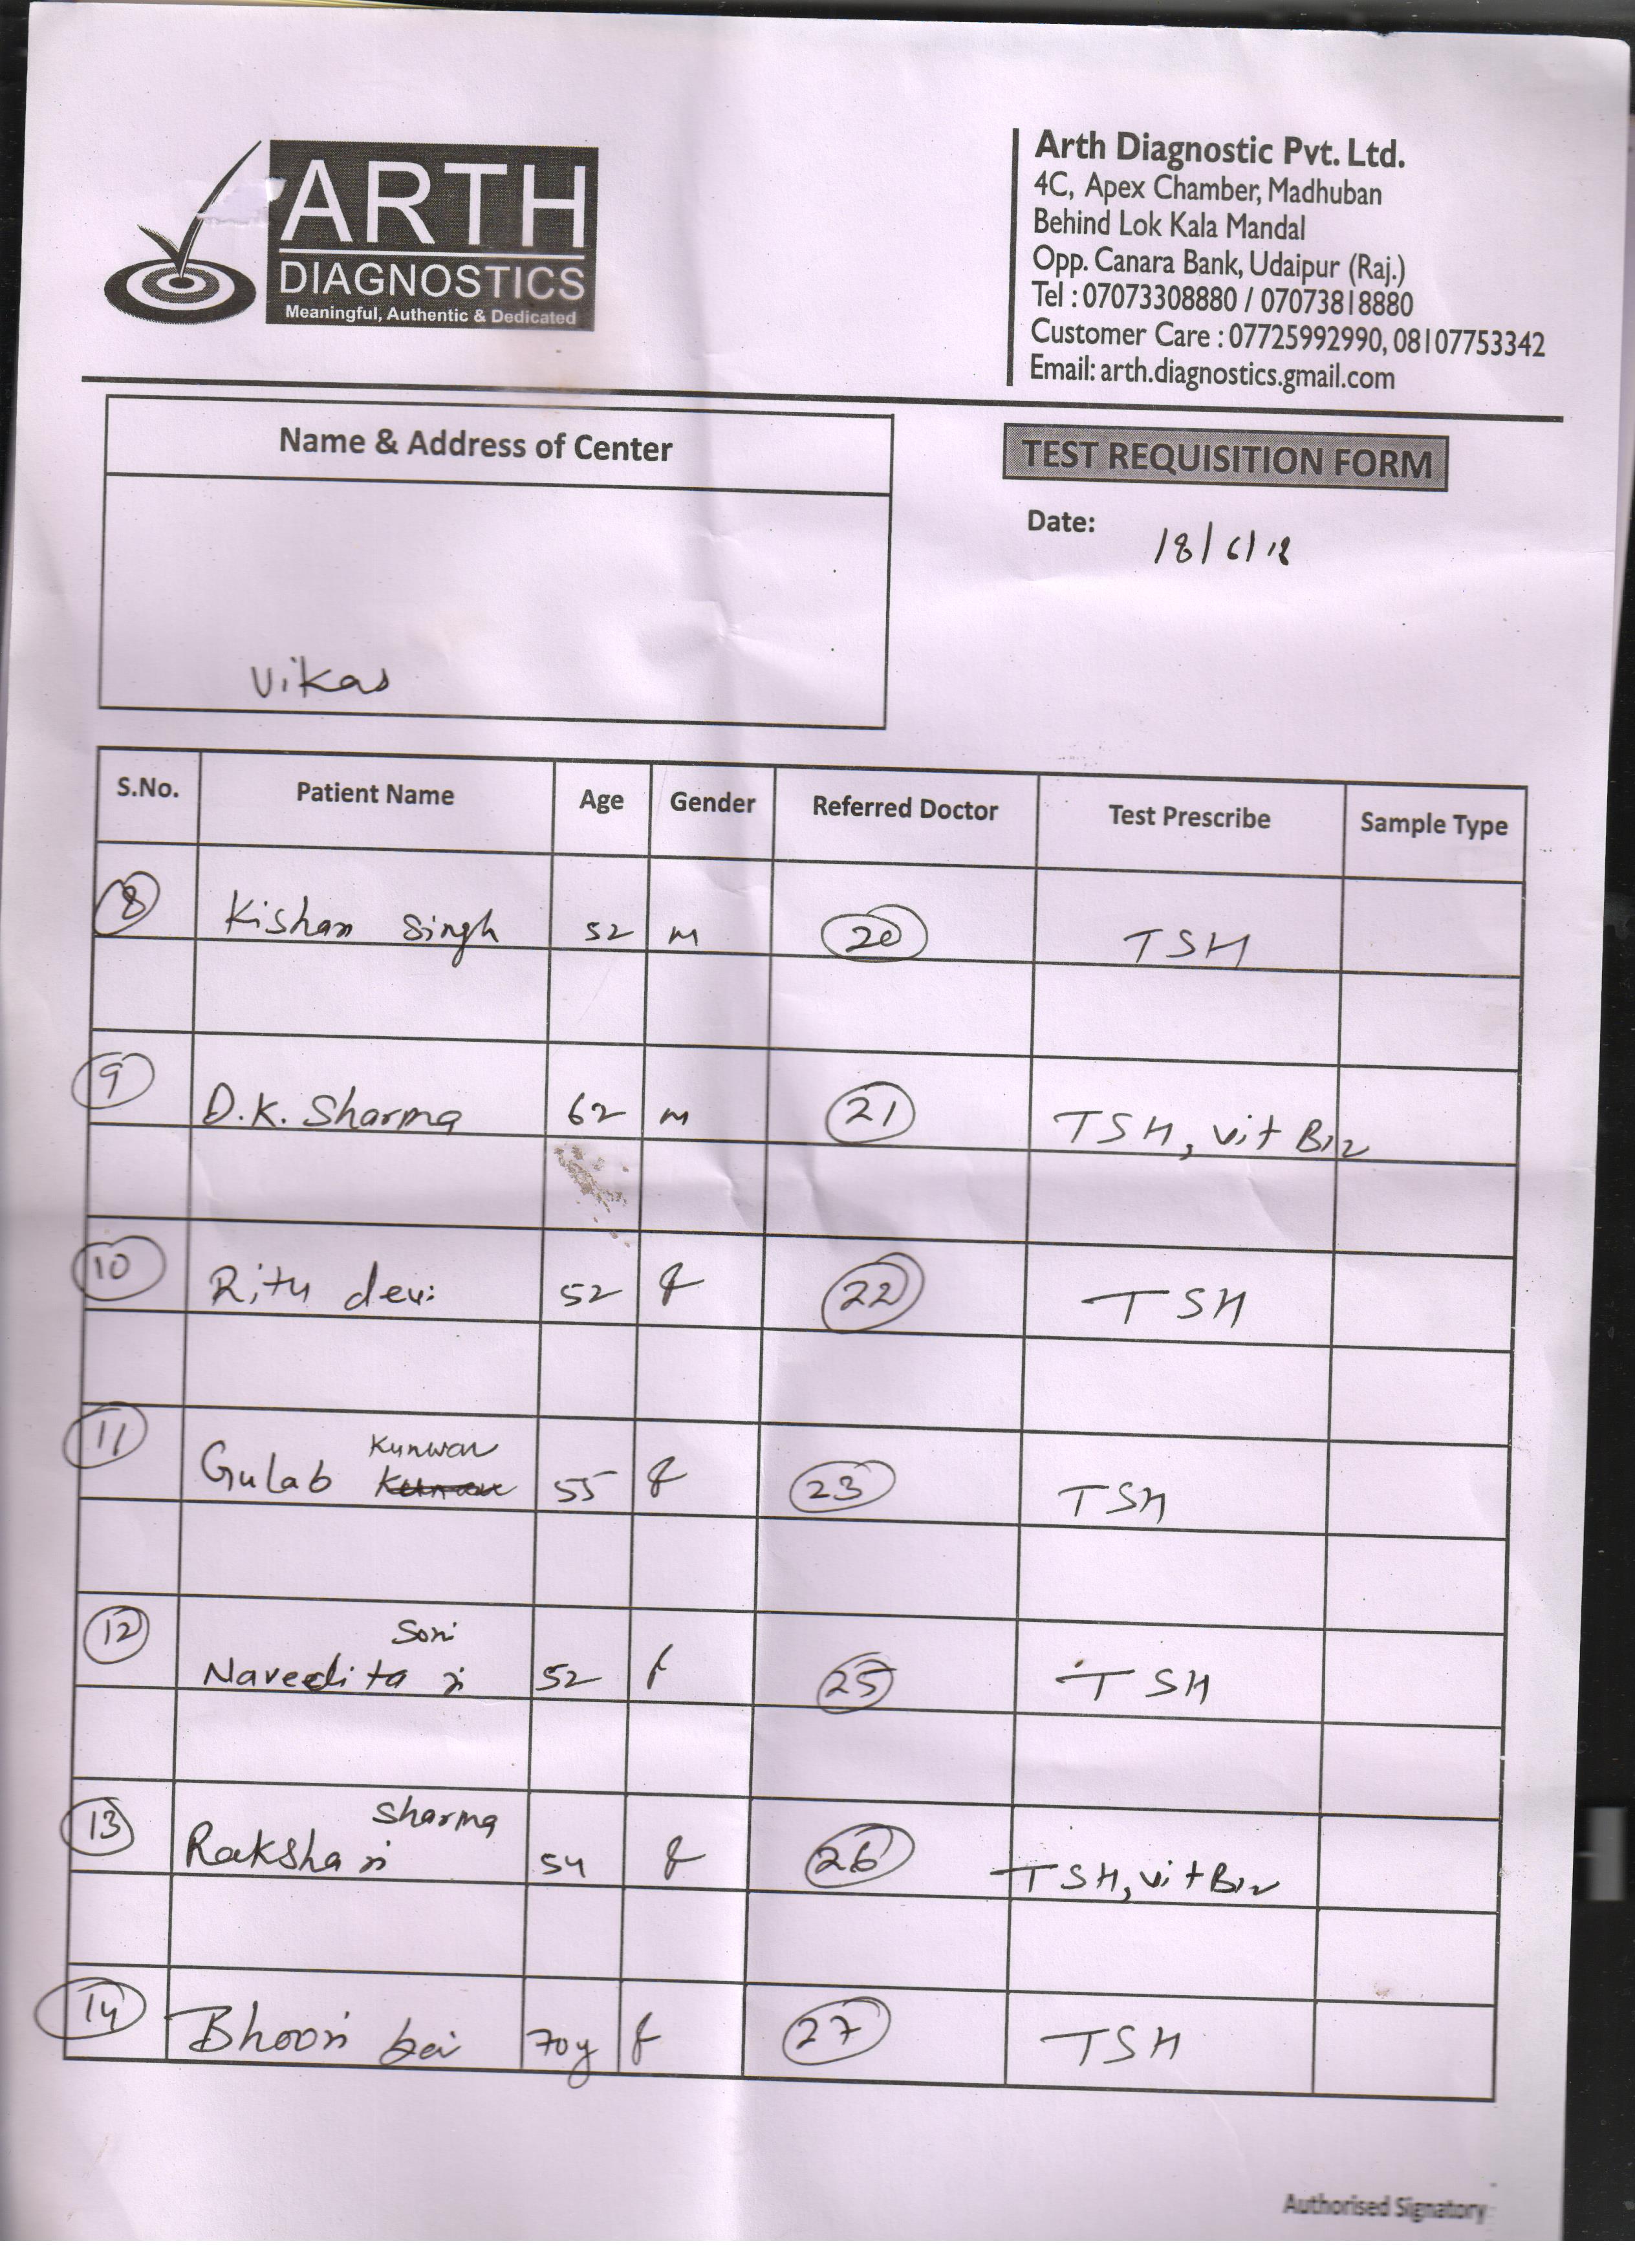 ARTH
DIAGNOSTICS
Meaningful, Authentic & Dedicated
Arth Diagnostic Pvt. Ltd.
4C, Apex Chamber, Madhuban
Behind Lok Kala Mandal
Opp. Canara Bank, Udaipur (Raj.)
Tel : 07073308880 / 07073818880
Customer Care : 07725992990, 08107753342
Email: arth.diagnostics.gmail.com
Name & Address of Center
TEST REQUISITION FORM
Date: 18/6/18
Vikas
S.No. Patient Name Age Gender Referred Doctor Test Prescribe Sample Type
8 Kishan Singh 52 M 20 TSH
9 D.K. Sharma 62 M 21 TSH, vit B12
10 Ritu devi 52 f 22 TSH
Kunwar
11 Gulab 55 f 23 TSH
Soni
12 Naveedita 52 f 25 TSH
Sharma
13 Raksha 54 f 26 TSH, vit B12
14 Bhoori bai 70y f 27 TSH
Authorised Signatory